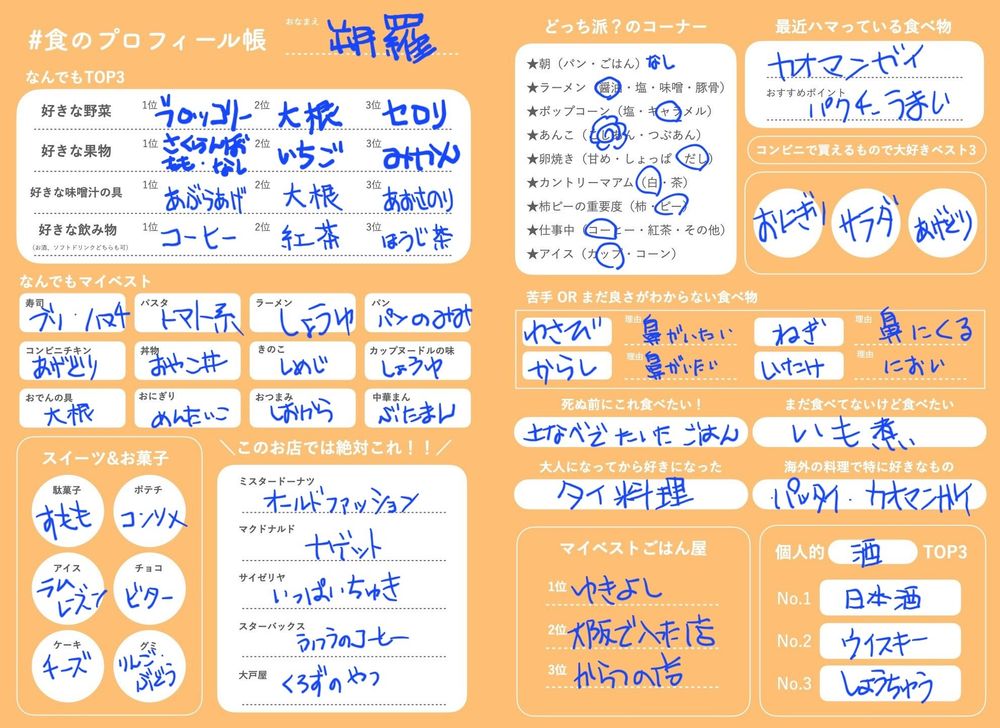 #食のプロフィール帳
おなまえ
朔羅
なんでもTOP3
好きな野菜 1位 ブロッコリー 2位 大根 3位 セロリ
好きな果物 1位 さくらんぼ もも・なし 2位 いちご 3位 みかん
好きな味噌汁の具 1位 あぶらあげ 2位 大根 3位 あおさのり
好きな飲み物 1位 コーヒー 2位 紅茶 3位 ほうじ茶
(お酒、ソフトドリンクどちらも可)
なんでもマイベスト
寿司 ブリ・ハマチ
パスタ トマト系
ラーメン しょうゆ
パン パンのみみ
コンビニチキン あげどり
丼物 おやこ丼
きのこ しめじ
カップヌードルの味 しょうゆ
おでんの具 大根
おにぎり めんたいこ
おつまみ しおから
中華まん ぶたまん
スイーツ&お菓子
駄菓子 すもも
ポテチ コンソメ
アイス ラムレーズン
チョコ ビター
ケーキ チーズ
グミ りんご・ぶどう
＼このお店では絶対これ！！／
ミスタードーナツ
オールドファッション
マクドナルド
ナゲット
サイゼリヤ
いっぱいちゅき
スターバックス
ふつうのコーヒー
大戸屋
くろずのやつ
どっち派？のコーナー
★朝（パン・ごはん）なし
★ラーメン（醤油・塩・味噌・豚骨）
★ポップコーン（塩・キャラメル）
★あんこ（こしあん・つぶあん）
★卵焼き（甘め・しょっぱ・だし）
★カントリーマアム（白・茶）
★柿ピーの重要度（柿・ピー）
★仕事中（コーヒー・紅茶・その他）
★アイス（カップ・コーン）
最近ハマっている食べ物
カオマンガイ
おすすめポイント
パクチーうまい
コンビニで買えるもので大好きベスト3
おにぎり
サラダ
あげどり
苦手 OR まだ良さがわからない食べ物
わさび 理由 鼻がいたい
ねぎ 理由 鼻にくる
からし 理由 鼻がいたい
しいたけ 理由 におい
死ぬ前にこれ食べたい！
土なべでたいたごはん
まだ食べてないけど食べたい
いも煮
大人になってから好きになった
タイ料理
海外の料理で特に好きなもの
パッタイ・カオマンガイ
マイベストごはん屋
1位 ゆきよし
2位 大阪で入った店
3位 からつの店
個人的 酒 TOP3
No.1 日本酒
No.2 ウイスキー
No.3 しょうちゅう